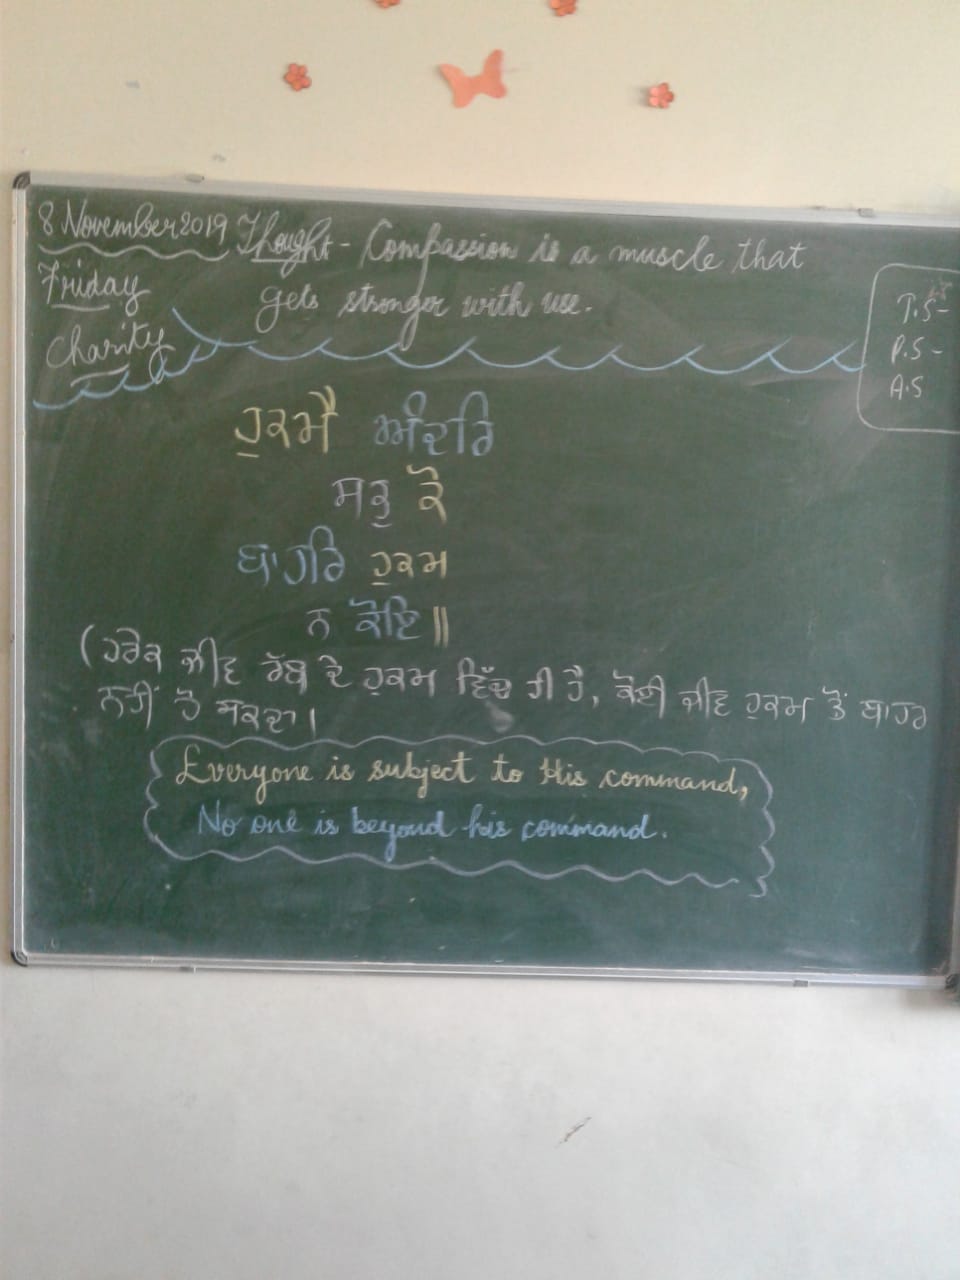 8 November 2019 Thought - Compassion is a muscle that
gets stronger with use.
Friday
Charity
T.S-
P.S-
A.S
ਹੁਕਮੈ ਅੰਦਰਿ
ਸਭੁ ਕੋ
ਬਾਹਰਿ ਹੁਕਮ
ਨ ਕੋਇ॥
(ਹਰੇਕ ਜੀਵ ਰੱਬ ਦੇ ਹੁਕਮ ਵਿੱਚ ਹੀ ਹੈ, ਕੋਈ ਜੀਵ ਹੁਕਮ ਤੋਂ ਬਾਹਰ
ਨਹੀਂ ਹੋ ਸਕਦਾ।
Everyone is subject to His command,
No one is beyond his command.